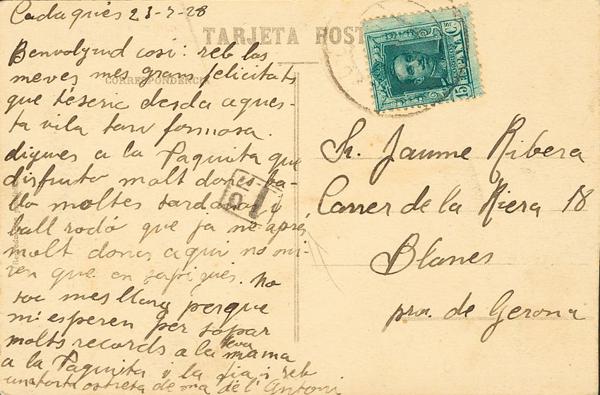 Cadaqués 23-7-28
TARJETA POST
CORRESPONDENCI
Benvolgud cosí: reb las
meves mes grans felicitats
que t'escric desda aques-
ta vila tan formosa.
digues a la Paquita que
disfruto molt dons ba-
llo moltes sardanas i
ball rodó que ja he apres
molt dons aqui no mi-
ren que en sapigues. No
soc mes llarg perque
mi esperen per sopar
molts records a la teva mama
a la Paquita y la tia i reb
una forta estreta de ma de l'Antoni
15 CTS
Sr. Jaume Ribera
Carrer de la Riera 18
Blanes
pro. de Gerona